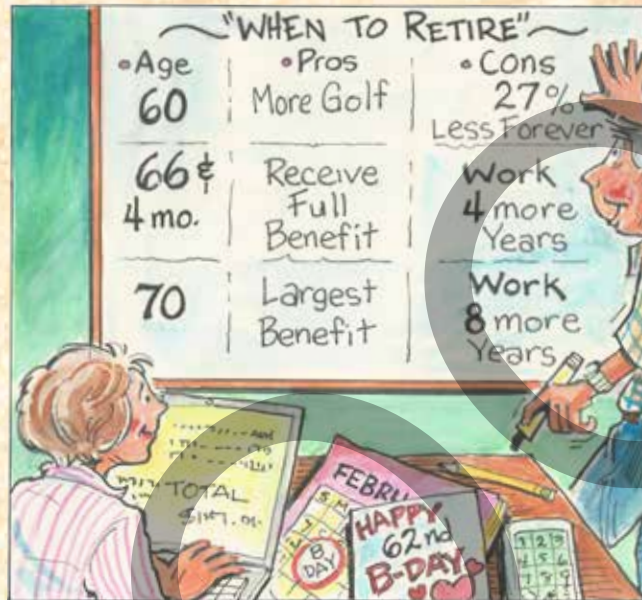 "WHEN TO RETIRE"
•Age
•Pros
•Cons
60
More Golf
27%
Less Forever
66 &
4 mo.
Receive
Full
Benefit
Work
4 more
Years
70
Largest
Benefit
Work
8 more
Years
TOTAL
FEBRU
S M
B
DAY
HAPPY
62nd
B-DAY
1 2 3
4 5 6
7 8 9